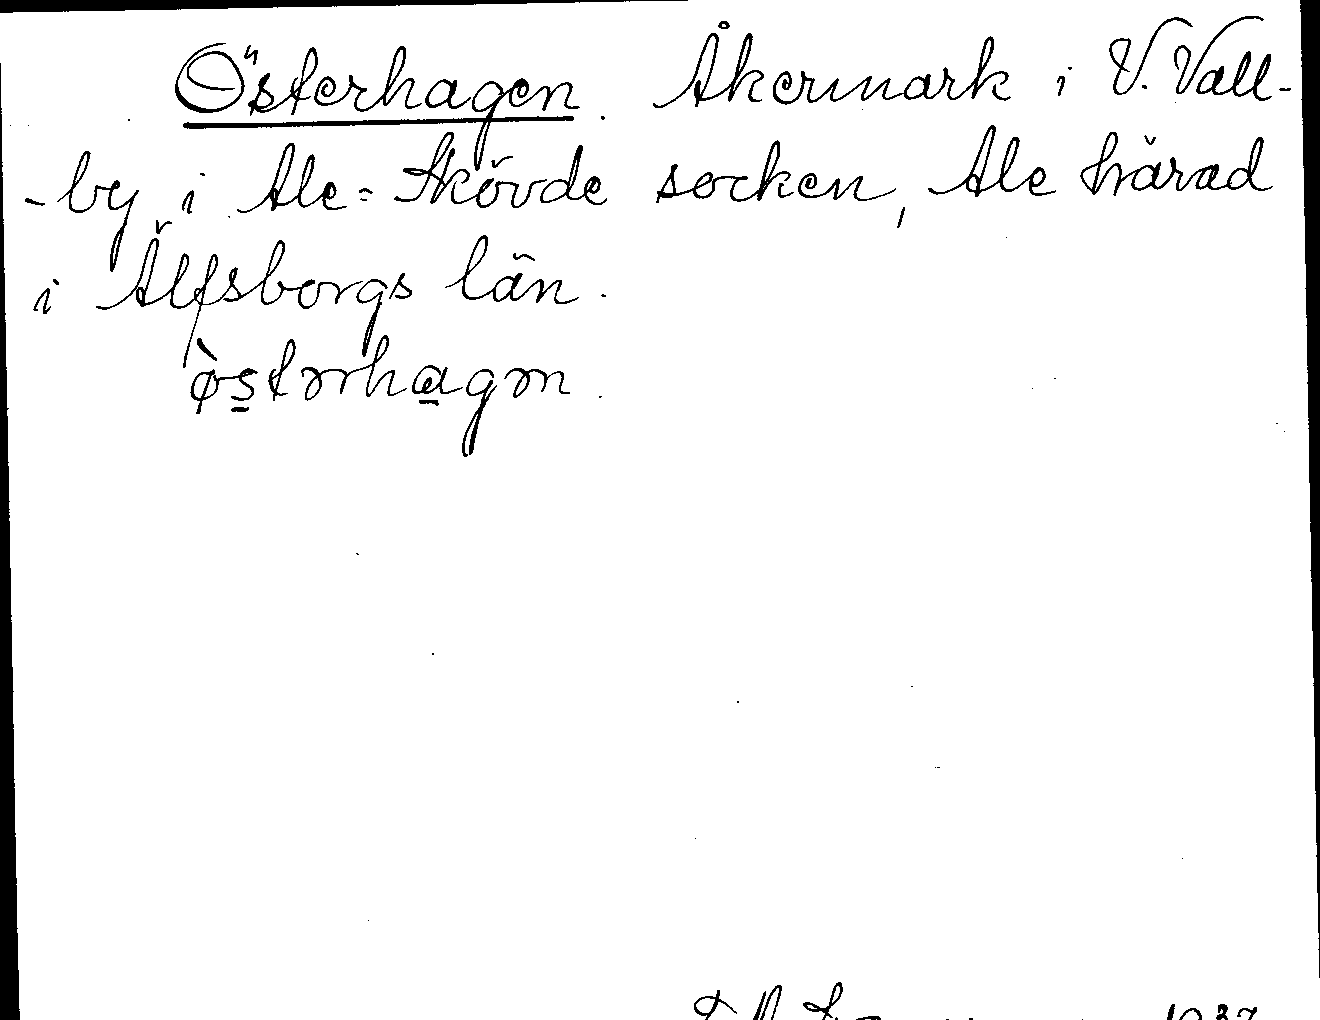 Österhagen. Åkermark i V. Vall-
-by i Ale-Skövde socken, Ale härad
i Älfsborgs län.
ø̀stərhagən.
1937